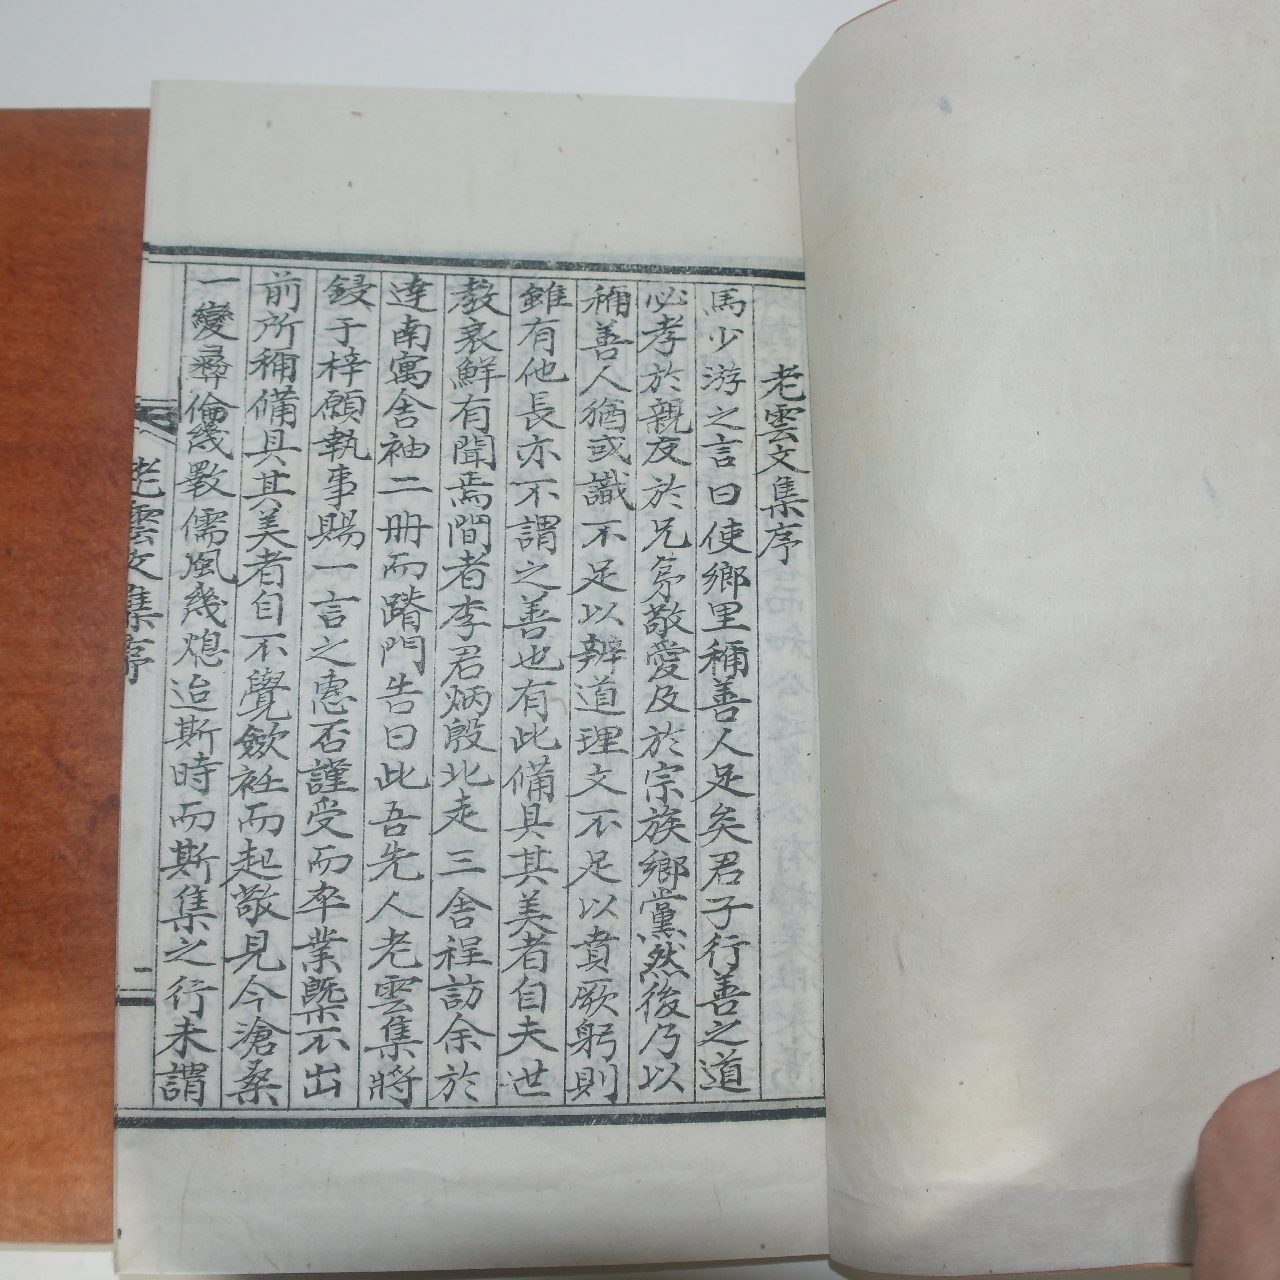 老雲文集序
馬少游之言曰使鄉里稱善人足矣君子行善之道
必孝於親友於兄弟敬愛及於宗族鄉黨然後乃以
稱善人猶或識不足以辨道理文不足以賁厥躬則
雖有他長亦不謂之善也有此備具其美者自夫世
敎衰鮮有聞焉間者李君炳殷北走三舍程訪余於
達南寓舍袖二冊而踏門告曰此吾先人老雲集將
鋟于梓願執事賜一言之惠否謹受而卒業旣不出
前所稱備具其美者自不覺斂衽而起敬見今滄桑
一變彛倫幾斁儒風幾熄迨斯時而斯集之行未謂
老雲文集序
一